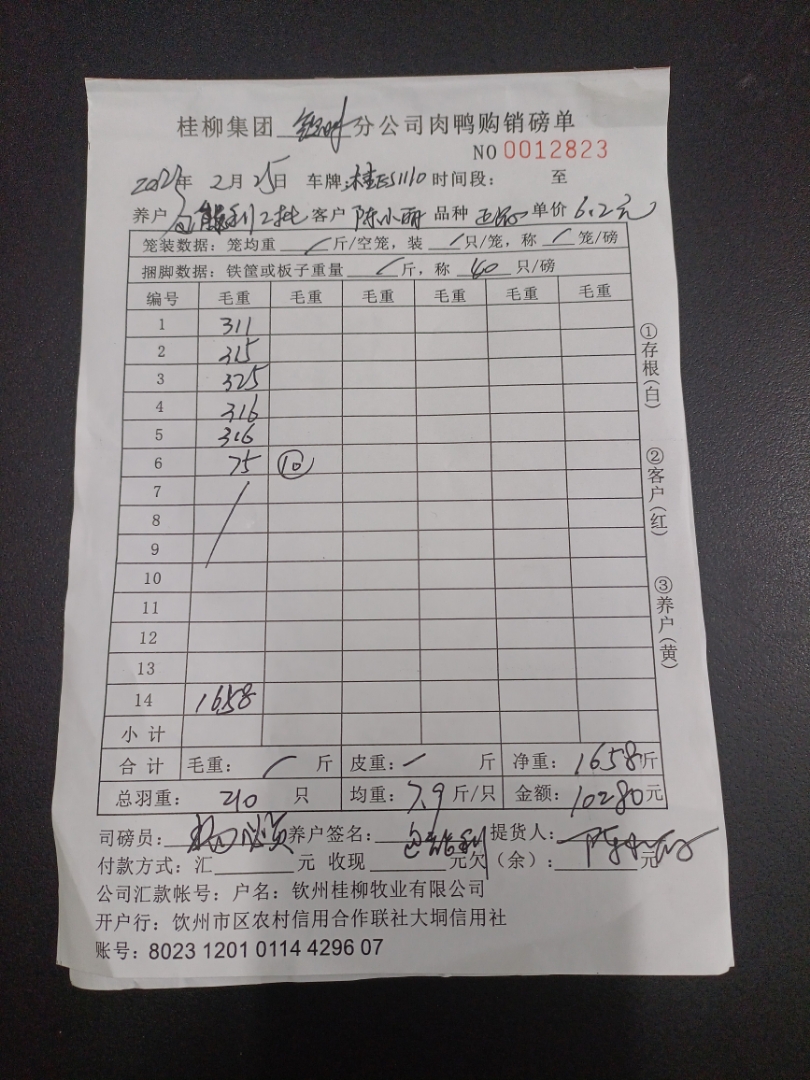 桂柳集团 分公司肉鸭购销磅单
NO 0012823
年 2月 25日 车牌: 1110 时间段: 至
养户 利2批 客户 陈小丽 品种 正品 单价 6.2元
笼装数据: 笼均重 / 斤/空笼, 装 / 只/笼, 称 / 笼/磅
捆脚数据: 铁筐或板子重量 / 斤, 称 40 只/磅
编号 毛重 毛重 毛重 毛重 毛重 毛重
1 311
2 315
3 325
4 316
5 316
6 75 ⑩
7
8
9
10
11
12
13
14 1658
小计
合计 毛重: / 斤 皮重: 斤 净重: 1658斤
总羽重: 210 只 均重: 7.9 斤/只 金额: 10280元
司磅员: 养户签名: 提货人:
付款方式: 汇 元 收现 元欠(余): 元
公司汇款帐号: 户名: 钦州桂柳牧业有限公司
开户行: 饮州市区农村信用合作联社大垌信用社
账号: 8023 1201 0114 4296 07
①存根(白)
②客户(红)
③养户(黄)